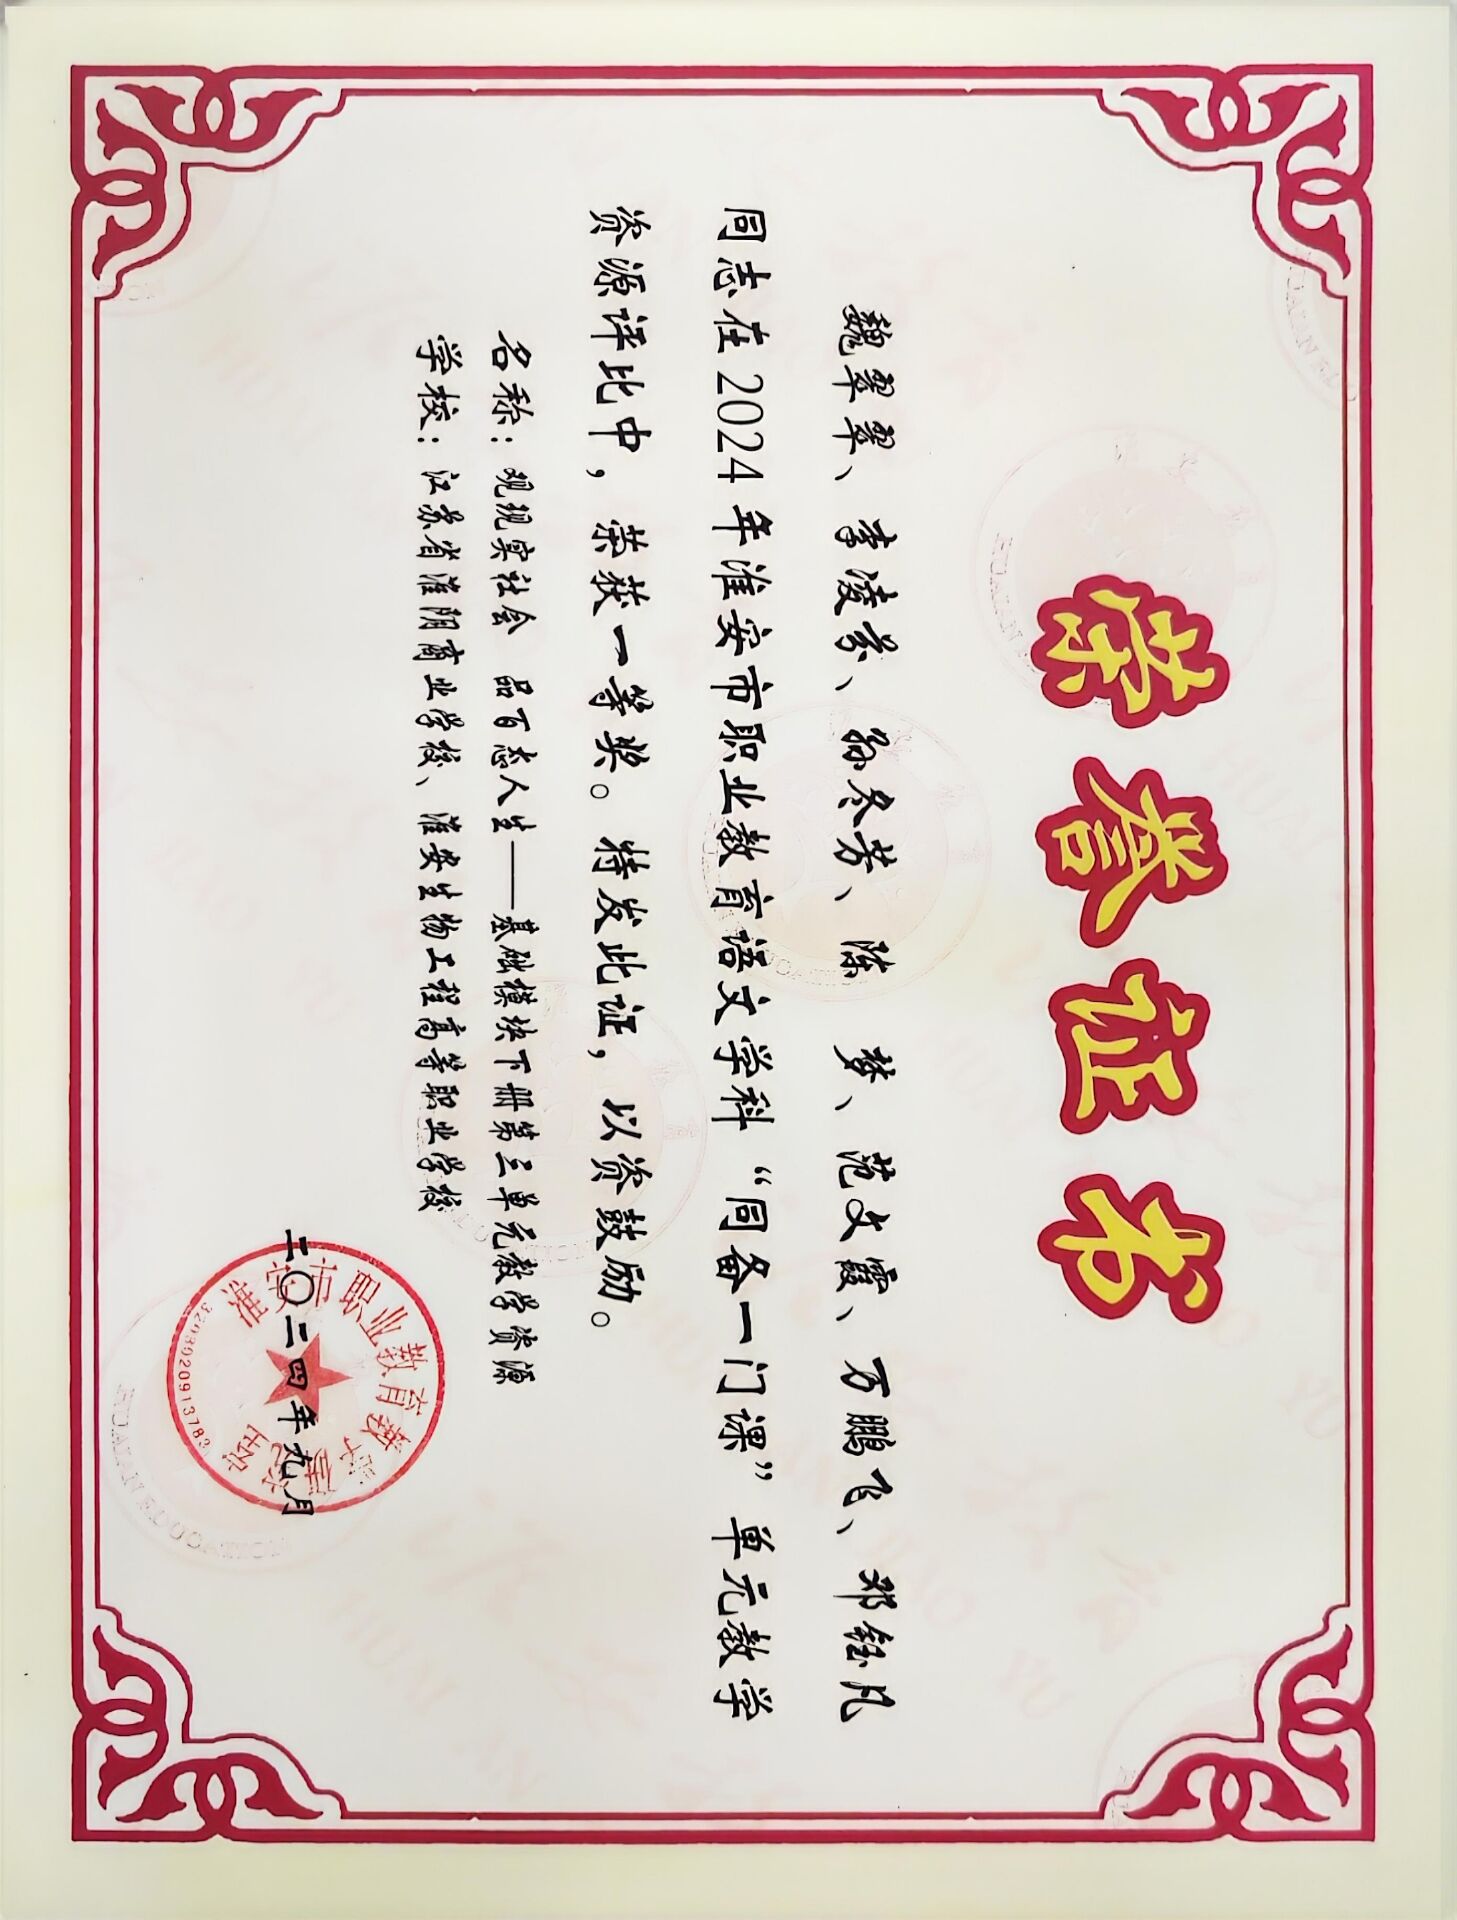 荣誉证书
魏翠翠、李凌芬、孙冬芳、陈 梦、范文霞、万鹏飞、邓钰凡
同志在2024年淮安市职业教育语文学科“同备一门课”单元教学
资源评比中，荣获一等奖。特发此证，以资鼓励。
名称：观现实社会 品百态人生——基础模块下册第三单元教学资源
学校：江苏省淮阴商业学校、淮安生物工程高等职业学校
淮安市职业教育教学研究室
二〇二四年九月
3208020913783